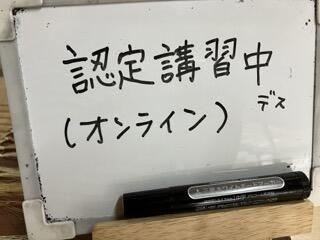 認定講習中
デス
(オンライン)